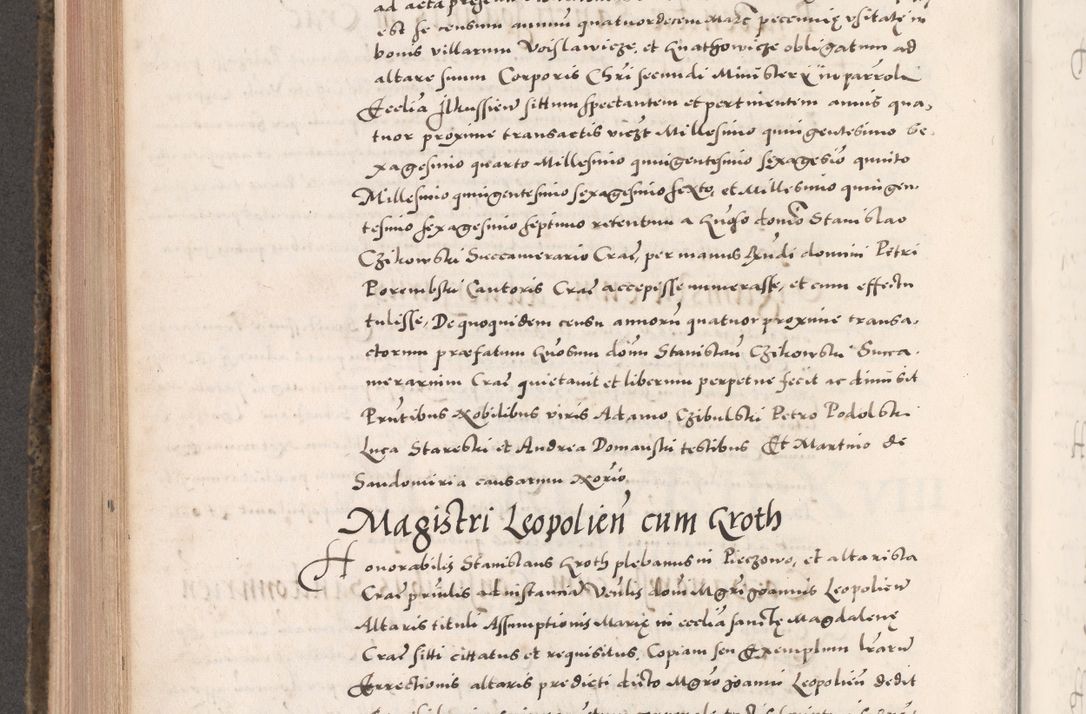 est se censum annuum quatuordecem Marc pecunię usitatę in
bonis villarum Voislawicze, et Gnathowicze obligatum ad
altare suum Corporis Chri secundi Ministerii in parroli
Ecclia Ilkussien sittum spectantem et pertinentem annis qua,
tuor proxime transactis viczt Millesimo quingentesimo se,
xagesimo quarto Millesimo quingentesimo sexagesio quinto
Millesimo quingentesimo sexagesimo sexto, et Millesimo quingen,
tesimo sexagesimo septimo retentum a Gnoso domo Stanislao
Czikowski Succamerario Crac, per manus Rndi domini Petri
Porembski Cantoris Crac accepisse numerasse, et cum effectu
tulisse, De quoquidem censu annoru quatuor proxime transa,
ctorum præfatum Gnosum domi Stanislau Czikowski Succa,
merarium Crac quietavit et liberum perpetue fecit ac dimisit
Pñtibus Nobilibus viris Adamo Czibulski Petro Podolski
Luca Stareski et Andrea Domanski testibus Et Martino de
Sandomiria causarum Norio
Magistri Leopolien cum Kroth
Honorabilis Stanislaus Kroth plebanus in Pieczowo, et altarista
Crac privilis ad instancia Venlis domi Mgri Joannis Leopolien
Altaris tituli Assumptionis Marię in ecclia sanctę Magdalenę
Crac sitti cittatus et requisitus, Copiam seu Exemplum lrarum
Errectionis altaris predicti dicto Mgro Joanni Leopolien dedit